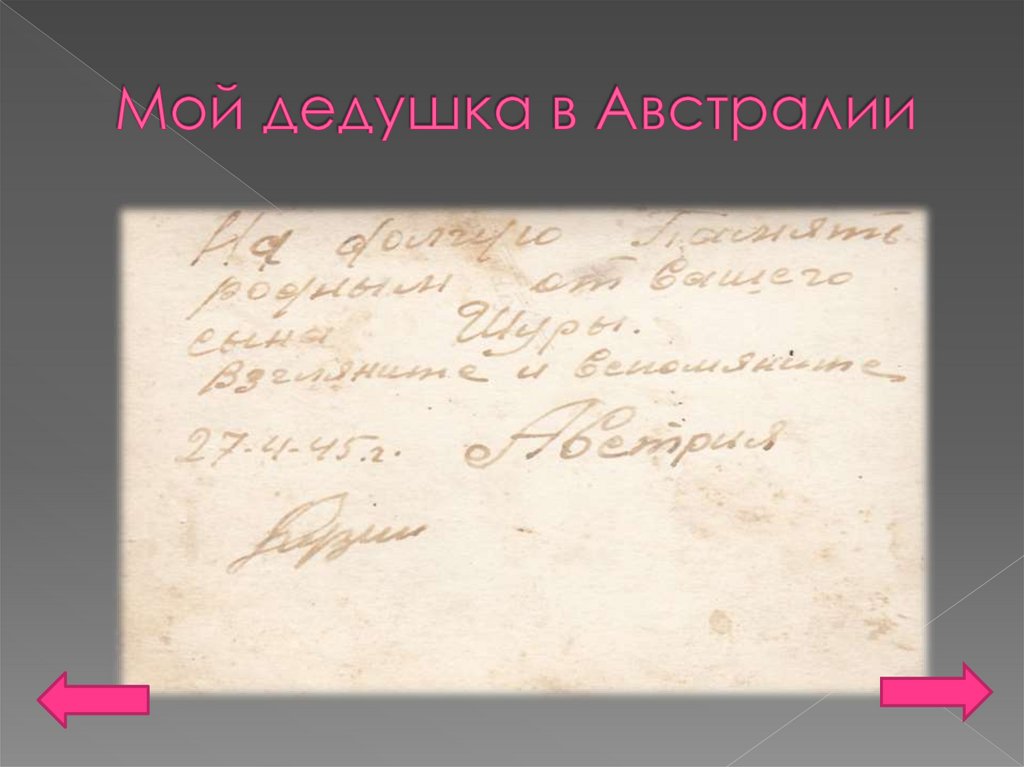 Мой дедушка в Австралии
На долгую Память
родным от вашего
сына Шуры.
Взгляните и вспомяните
27-4-45.г. Австрия